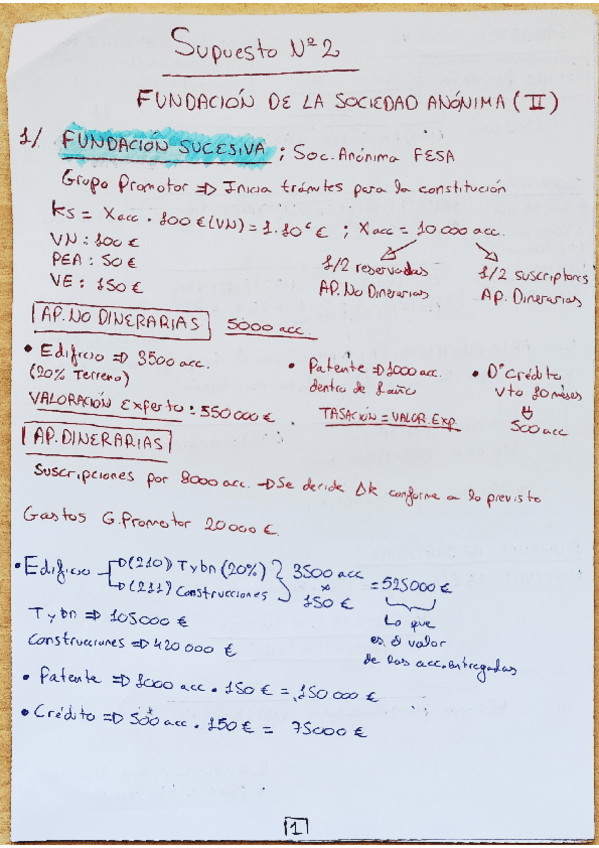 Supuesto Nº 2
FUNDACIÓN DE LA SOCIEDAD ANÓNIMA (II)
1/ FUNDACIÓN SUCESIVA ; Soc. Anónima FESA
Grupo Promotor => Inicia trámites para la constitución
Ks = Xacc · 100 € (VN) = 1·10⁶ € ; Xacc = 10000 acc.
VN : 100 €
PEA : 50 €
VE : 150 €
1/2 reservadas
AP. No Dinerarias
1/2 suscriptores
AP. Dinerarias
AP. NO DINERARIAS 5000 acc.
• Edificio => 3500 acc.
(20% Terreno)
VALORACIÓN Experto : 550000 €
• Patente => 1000 acc.
dentro de 1 año
TASACIÓN = VALOR. EXP.
• Dº Crédito
Vto 10 meses
500 acc
AP. DINERARIAS
Suscripciones por 8000 acc. -> Se decide Δk conforme a lo previsto
Gastos G. Promotor 20000 €.
• Edificio -> (210) Tybn (20%)
-> (211) Construcciones
3500 acc
x
150 €
= 525000 €
Lo que
es el valor
de las acc. entregadas
Tybn => 105000 €
Construcciones => 420 000 €
• Patente => 1000 acc · 150 € = 150 000 €
• Crédito => 500 acc · 150 € = 75000 €
1